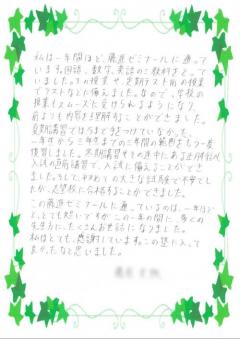 私は一年間ほど、藤進ゼミナールに通って
います。国語、数学、英語の三教科をとって
いました。ふつうの授業や、定期テスト前の授業
でテストなどに備えました。なので、学校の
授業もスムーズに受けられるようになり、
前よりも内容を理解することができました。
夏期講習では今まで手をつけていなかった、
一年生から三年生までの三年間の範囲をもう一度
復習しました。冬期講習やその途中にある
入試の直前講習で、入試に備えることができ
ました。そして、初めての大きな試験で不安でし
たが、志望校に合格することができました。
この藤進ゼミナールに通っているのは、一年ほど
と、とても短いですが、この一年の間に、多くの
先生方に、たくさんお世話になりました。
私はとても、感謝しています。この塾に入って
よかったなと思いました。